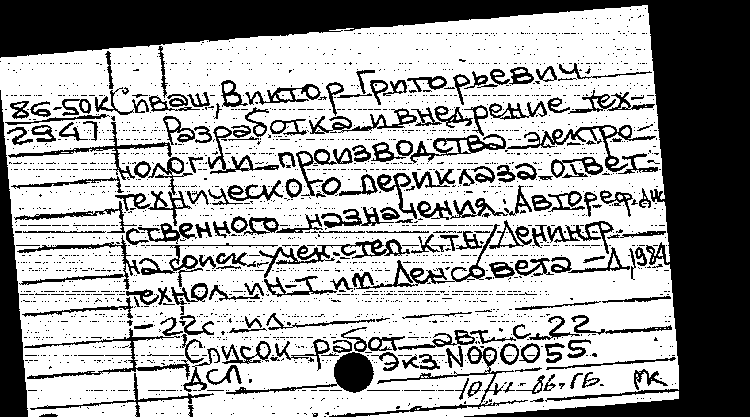 86-50К Спваш, Виктор Григорьевич.
2947 Разработка и внедрение тех-
нологии производства электро-
технического периклаза ответ-
ственного назначения: Автореф. дис.
на соиск. учен. степ. к.т.н./Ленингр.
технол. ин-т им. Ленсовета – Л, 1984
– 22с.: ил.
Список работ авт.: с. 22.
ДСП. Экз N000055.
10/VI-86. ГБ. МК